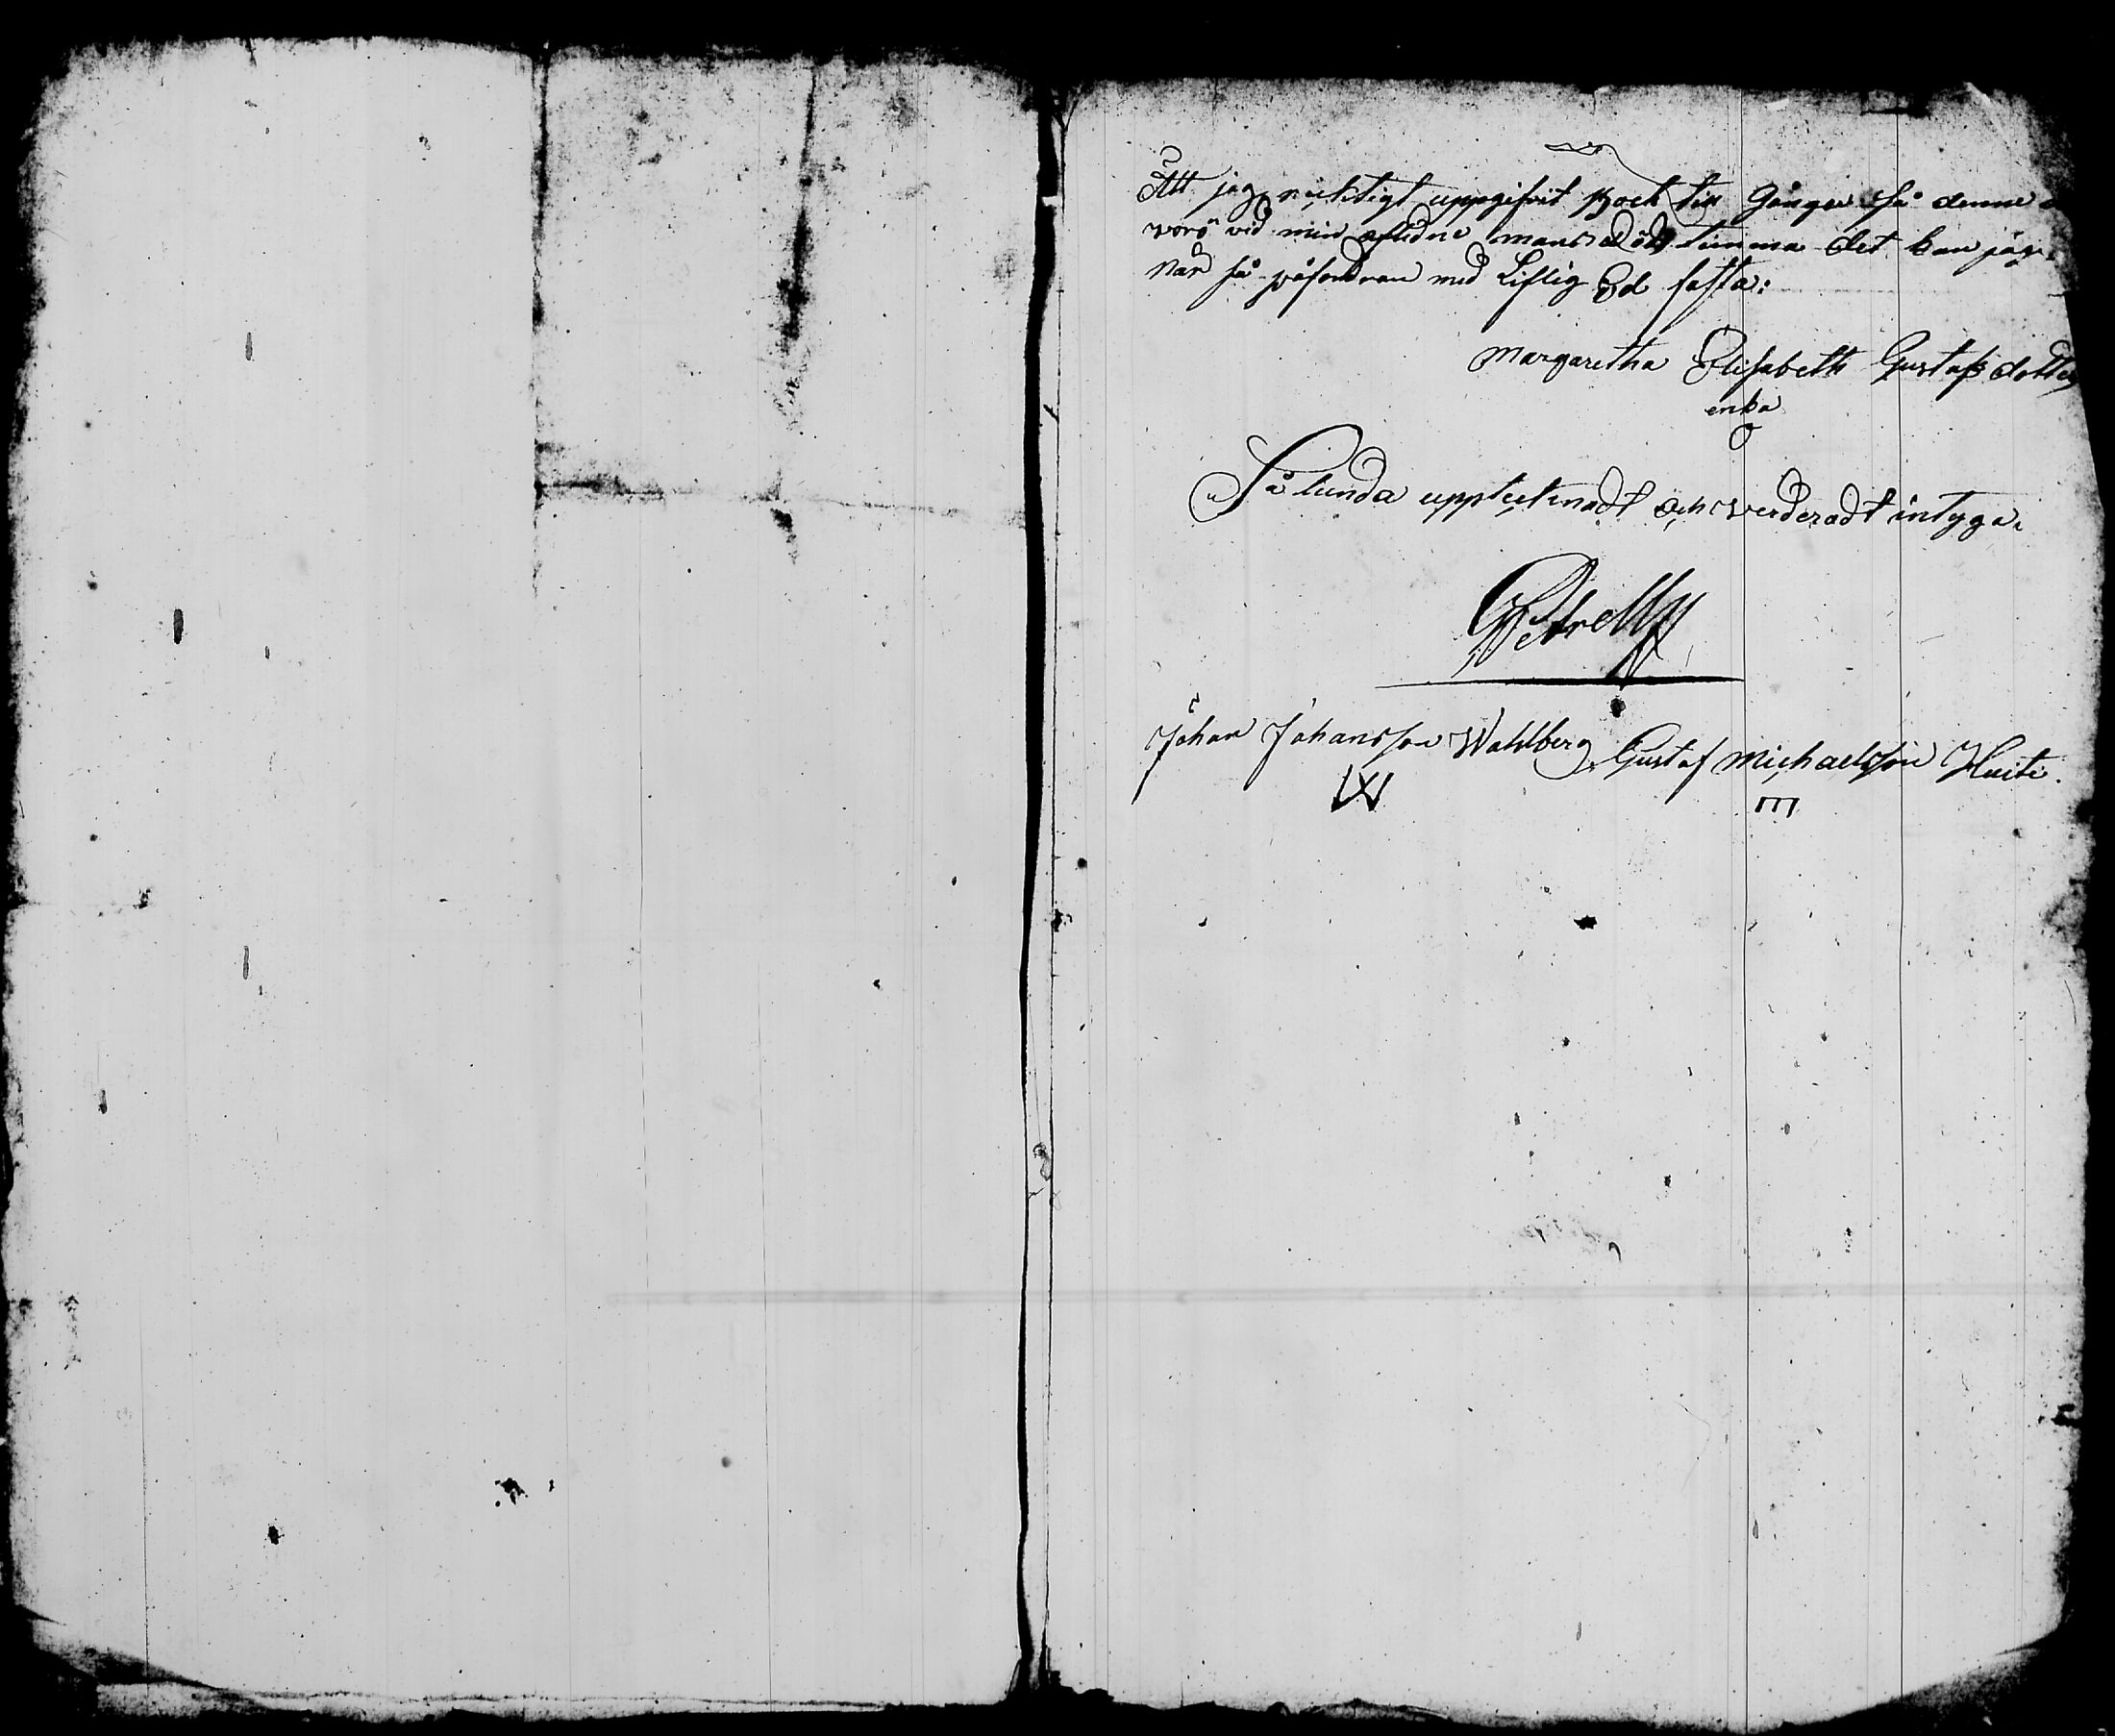 Att jag ricktigt uppgifvit Bock till gångar så denne
voro vid min aflidne mans Dödstimma det kan jag
når så påfordran med Liflig Ed fästa:
Margaretha Elisabeth Gustafsdotter
enka
Sålunda upptecknadt och verderadt intyga
GPetrell
Johan Johansson Wahlberg Gustaf Michaelsson Huite.
W m